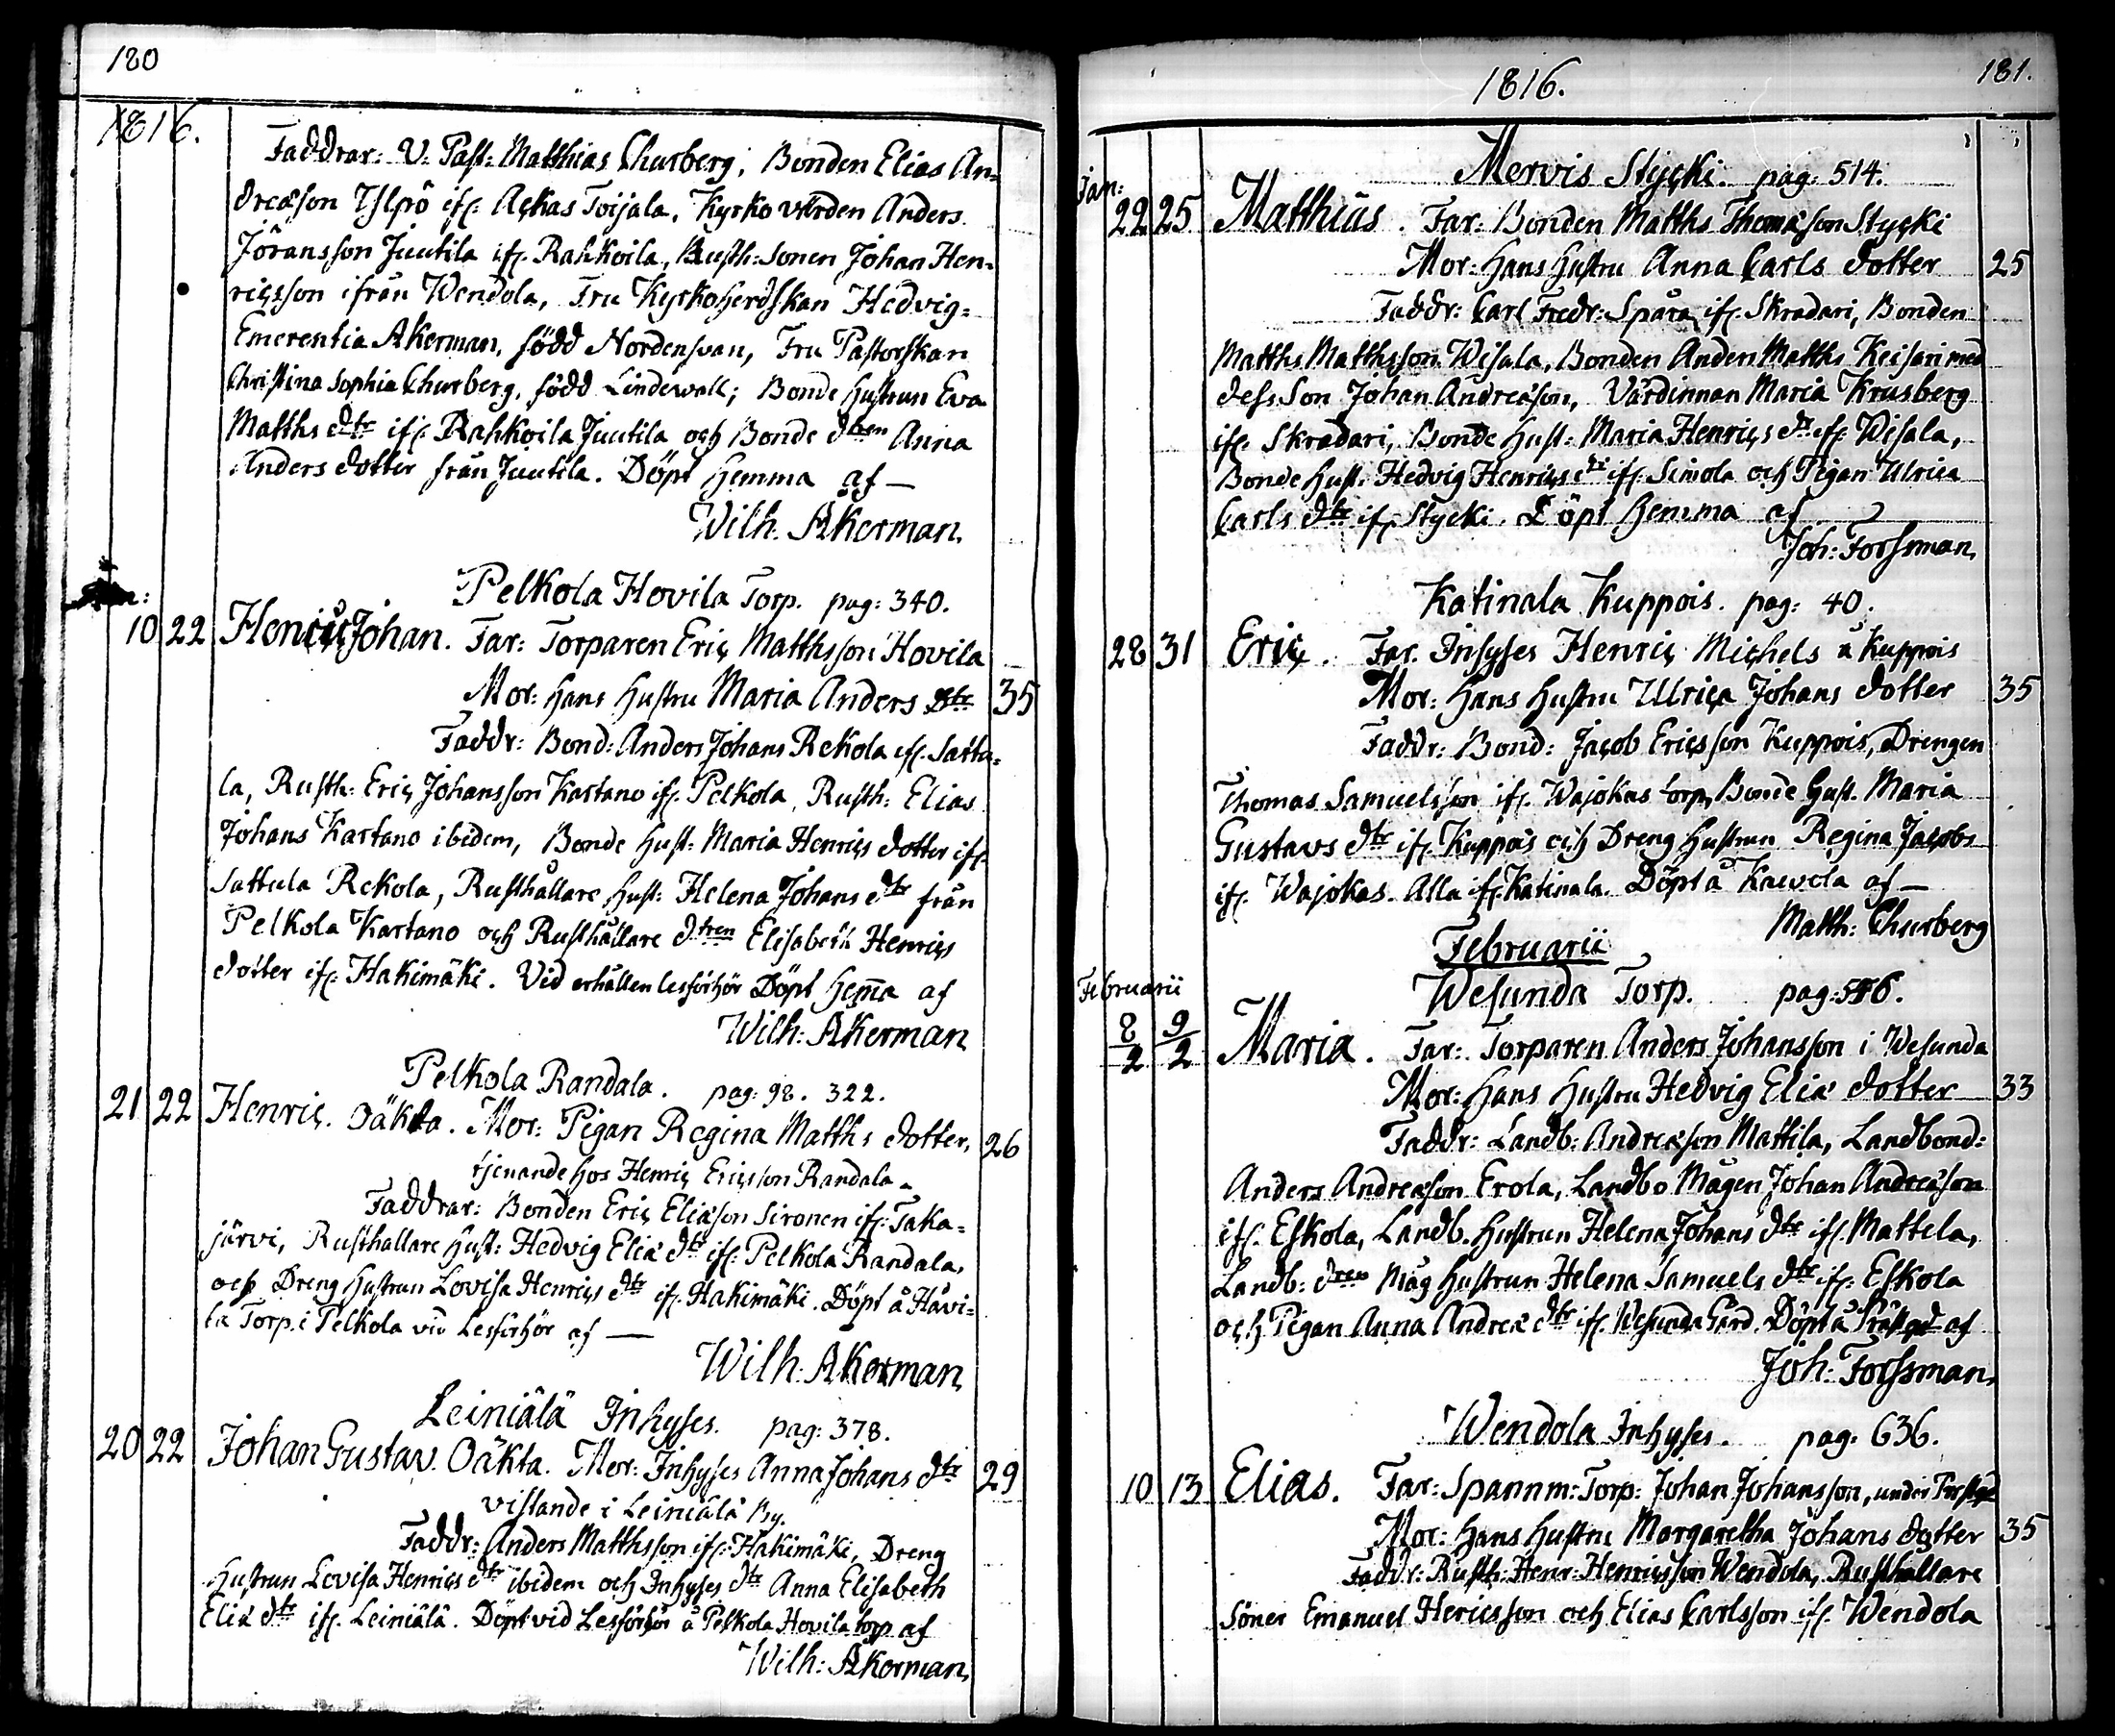 180
1816.
Faddrar: V: Past: Matthias Churberg; Bonden Elias An=
dreæson Ysprö ifr: Ackas Toijala, Kyrkovärden Anders
Jöransson Juutila ifr. Rahkoila, Rusth: Sonen Johan Hen=
ricsson ifrån Wendola, Fru Kyrkoherdskan Hedvig=
Emerentia Åkerman, född Nordensvan, Fru Pastorskan
Christina Sophia Churberg, född Lindewall; Bonde Hustrun Eva
Matths dtr ifr. Rahkoila Juutila och Bonde dtren Anna
Anders dotter från Juutila. Döpt hemma af —
Wilh. Åkerman.
Pelkola Hovila Torp. pag: 340.
10 22 Henric Johan. Far: Torparen Eric Matthsson Hovila
Mor: Hans Hustru Maria Anders dtr 35
Faddr: Bond: Anders Johans Rekola ifr. Sattu=
la, Rusth: Eric Johansson Kartano ifr. Pelkola, Rusth: Elias
Johans Kartano ibidem, Bonde Hust: Maria Henrics dotter ifr.
Sattula Rekola, Rusthållare Hust: Helena Johans dtr från
Pelkola Kartano och Rusthållare dtren Elisabeth Henrics
dotter ifr. Hakimäki. Vid erhållen läsförhör Döpt hemma af
Wilh: Åkerman
Pelkola Randala. pag: 98. 322.
21 22 Henric. Oäkta. Mor: Pigan Regina Matths dotter, 26
tjenande hos Henric Ericsson Randala.
Faddrar: Bonden Eric Eliæson Sironen ifr: Taka=
järvi, Rusthållare Hust: Hedvig Eliæ dtr ifr: Pelkola Randala,
och Dreng Hustrun Lovisa Henrics dtr ifr. Hakimäki. Döpt å Håvi=
la Torp i Pelkola vid Lesförhör af —
Wilh: Åkerman
Leiniälä Inhyses. pag: 378.
20 22 Johan Gustav. Oäkta. Mor: Inhyses Anna Johans dtr 29
vistande i Leiniälä By.
Faddr: Anders Matthsson ifr: Hakimäki, Dreng
Hustrun Lovisa Henrics dtr ibidem och Inhyses dtr Anna Elisabeth
Eliæ dtr ifr. Leiniälä. Döpt vid Lesförhör å Pelkola Hovila torp af
Wilh: Åkerman.
1816. 181.
Mervis Stycki. pag: 514.
Jan:
22 25 Matthias. Far: Bonden Matths Thomæson Stycki
Mor: Hans Hustru Anna Carls dotter 25
Faddr: Carl Fredr: Spåra ifr. Skradari, Bonden
Matths Matthsson Wisala, Bonden Anders Matths Keisari med
dess Son Johan Andreæson, Värdinnan Maria Krusberg
ifr. Skradari, Bonde Hust: Maria Henrics dr ifr. Wisala,
Bonde Hust: Hedvig Henrics dtr ifr. Simola och Pigan Ulrica
Carls dtr ifr. Stycki. Döpt hemma af
Joh: Forssman.
Katinala Kuppois. pag: 40.
28 31 Eric. Far. Inhyses Henric Michels å Kuppois
Mor: Hans Hustru Ulrica Johans dotter 35
Faddr: Bond: Jacob Ericsson Kuppois, Drengen
Thomas Samuelsson ifr. Wajokas torp, Bonde Hust. Maria
Gustavs dtr ifr. Kuppois och Dreng Hustrun Regina Jacobs
ifr. Wajokas. Alla ifr. Katinala. Döpt å Kaevola af —
Matth: Churberg
Februarii
Februarii
Wesunda Torp. pag: 546.
8/2 9/2 Maria. Far: Torparen Anders Johansson i Wesunda
Mor: Hans Hustru Hedvig Eliæ dotter 33
Faddr: Landb: Andreæson Mattila, Landbond:
Anders Andreæson Erola, Landbo Mågen Johan Andreæson
ifr. Eskola, Landb. Hustrun Helena Johans dtr ifr. Mattela,
Landb: dren Måg Hustrun Helena Samuels dtr ifr: Eskola
och Pigan Anna Andreæ dtr ifr. Wesunda Gård. Döpt å Prästgd af
Joh: Forssman.
Wendola Inhyses. pag: 636.
10 13 Elias. Far: Spannm: Torp: Johan Johansson, under
Mor: Hans Hustru Margaretha Johans dotter 35
Faddr: Rusth: Henr: Henricsson Wendola, Rusthållare
Söner Emanuel Hericsson och Elias Carlsson ifr. Wendola